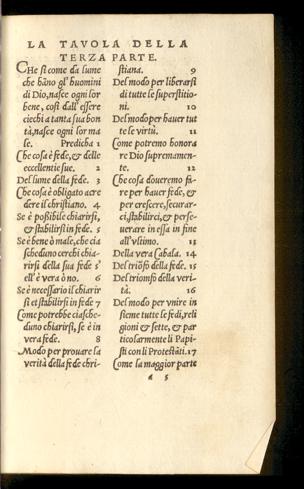 LA TAVOLA DELLA
TERZA PARTE.
CHe si come da lume
che hāno gl'huomini
di Dio, nasce ogni lor
bene, cosi dall'essere
ciechi a tanta sua bon
tà, nasce ogni lor ma
le. Predicha 1
Che cosa è fede, & delle
eccellentie sue. 2
Del lume della fede. 3
Che cosa è obligato acre
dere il christiano. 4
Se è poßibile chiarirsi,
& stabilirsi in fede. 5
Se è bene ò male, che cia
scheduno cerchi chia-
rirsi della sua fede s'
ell' è vera ò no. 6
Se è necessario il chiarir
si et stabilirsi in fede 7
Come potrebbe ciasche-
duno chiarirsi, se è in
vera fede. 8
Modo per prouare la
verità della fede chri-
stiana. 9
Del modo per liberarsi
di tutte le superstitio-
ni. 10
Del modo per hauer tut
te le virtù. 11
Come potremo honora
re Dio supremamen-
te. 12
Che cosa doueremo fa-
re per hauer fede, &
per crescere, securar-
ci, stabilirci, & perse-
uerare in essa in fine
all'vltimo. 13
Della vera Cabala. 14
Del triōfo della fede. 15
Del triomfo della veri-
tà. 16
Del modo per vnire in
sieme tutte le fedi, reli
gioni & sette, & par
ticolarmente li Papi-
sti con li Protestāti. 17
Come la maggior parte
a 5